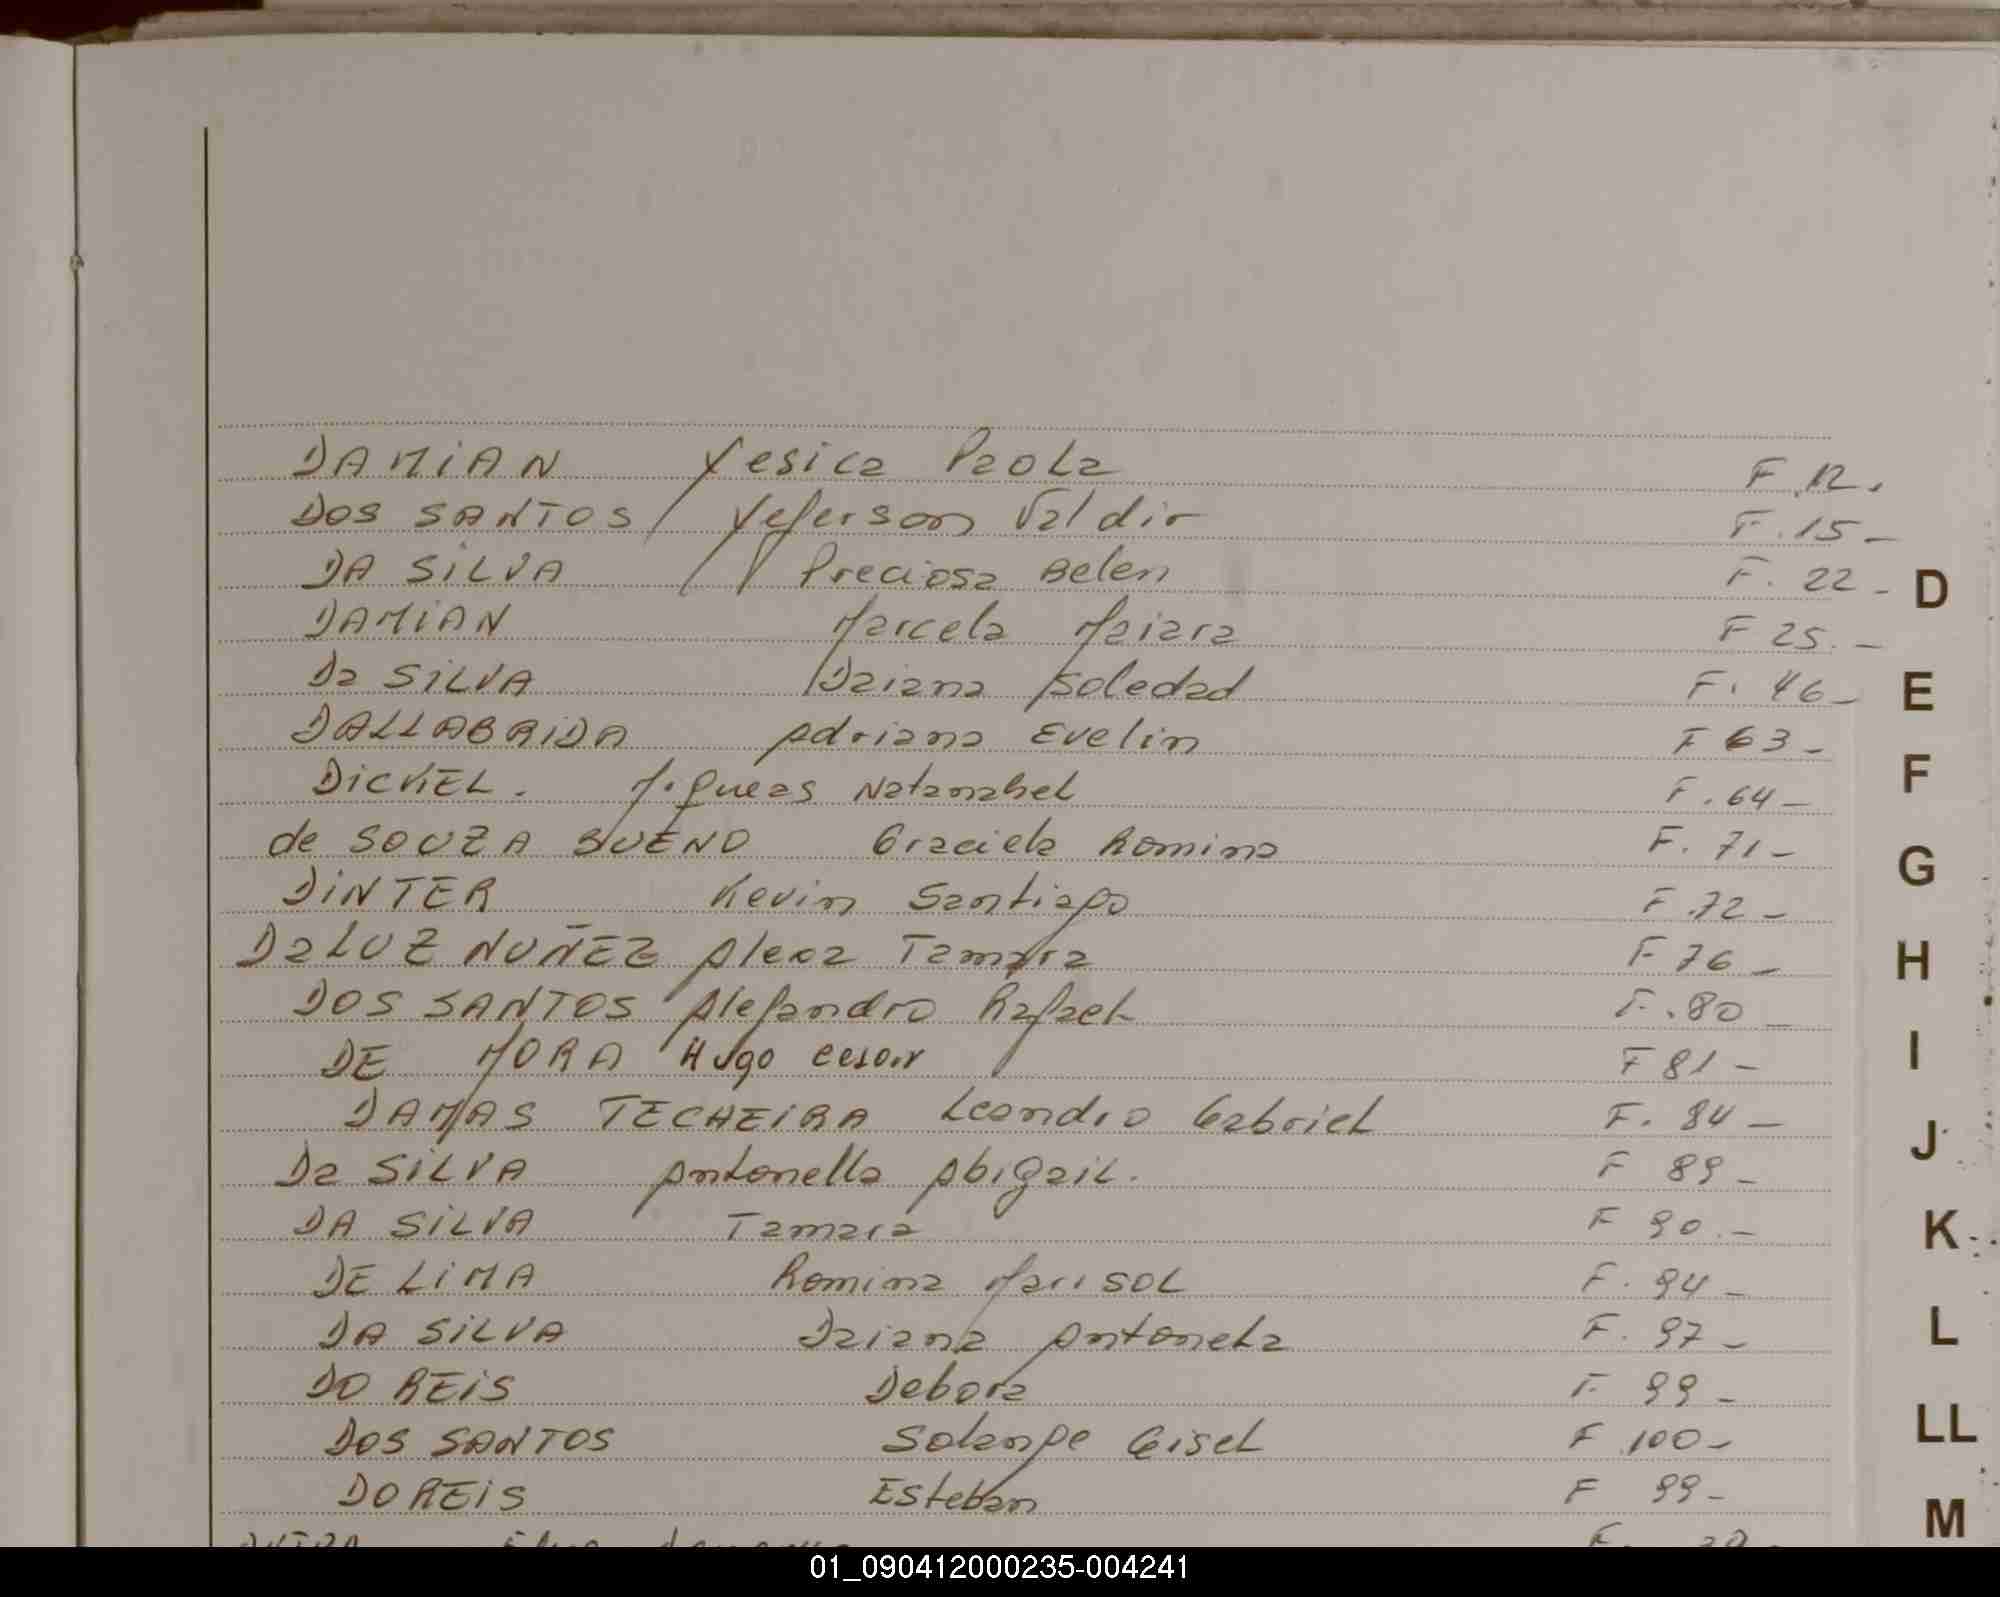 DAMiAN Yesica Paola F.12.
DOS SANTOS Yeferson Valdir F.15-
DA SiLVA Preciosa Belen F. 22-
DAMiAN Marcela Maiara F 25.-
Da SiLVA Daiana Soledad F. 46-
DALLABRiDA Adriana Evelin F 63-
DiCKEL. Natanabel F.64-
de SOUZA BUENO Graciela Romina F. 71-
DiNTER Kevin Santiago F.72-
Da LUZ NUÑEZ Tamara F-76-
DOS SANTOS Alejandro Rafael F.80-
DE MORA Hugo cesar F 81-
DAMAS TECHEiRA Leandro Gabriel F. 84-
Da SiLVA Antonella Abigail. F 89-
DA SiLVA Tamara F 90.-
DE LiMA Romina Marisol F. 94-
DA SiLVA Daiana Antonela F. 97-
DO REiS Debora F 99-
DOS SANTOS Solange Gisel F 100-
DO REiS Esteban F 99-
D
E
F
G
H
I
J
K
L
LL
M
01_090412000235-004241